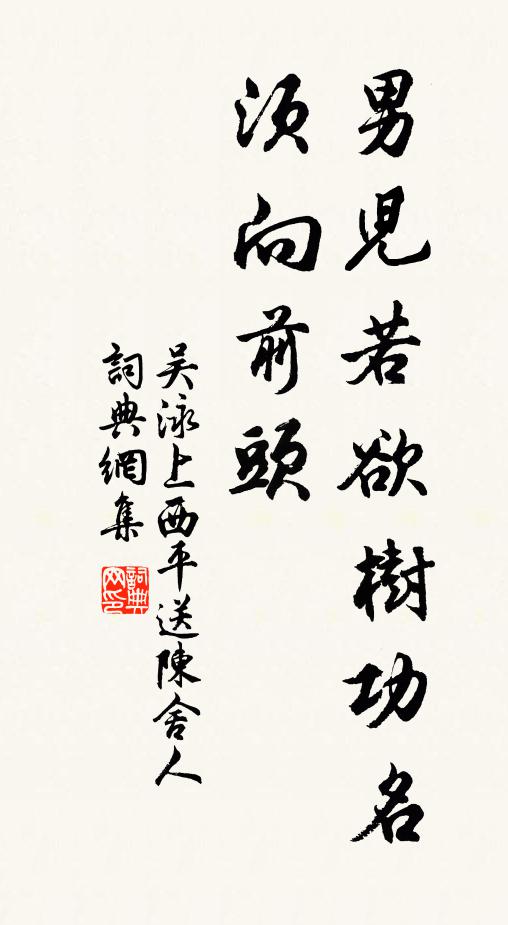 男兒若欲樹功名
須向前頭
吳泳上西平送陳舍人
詞典網集
詞典網印